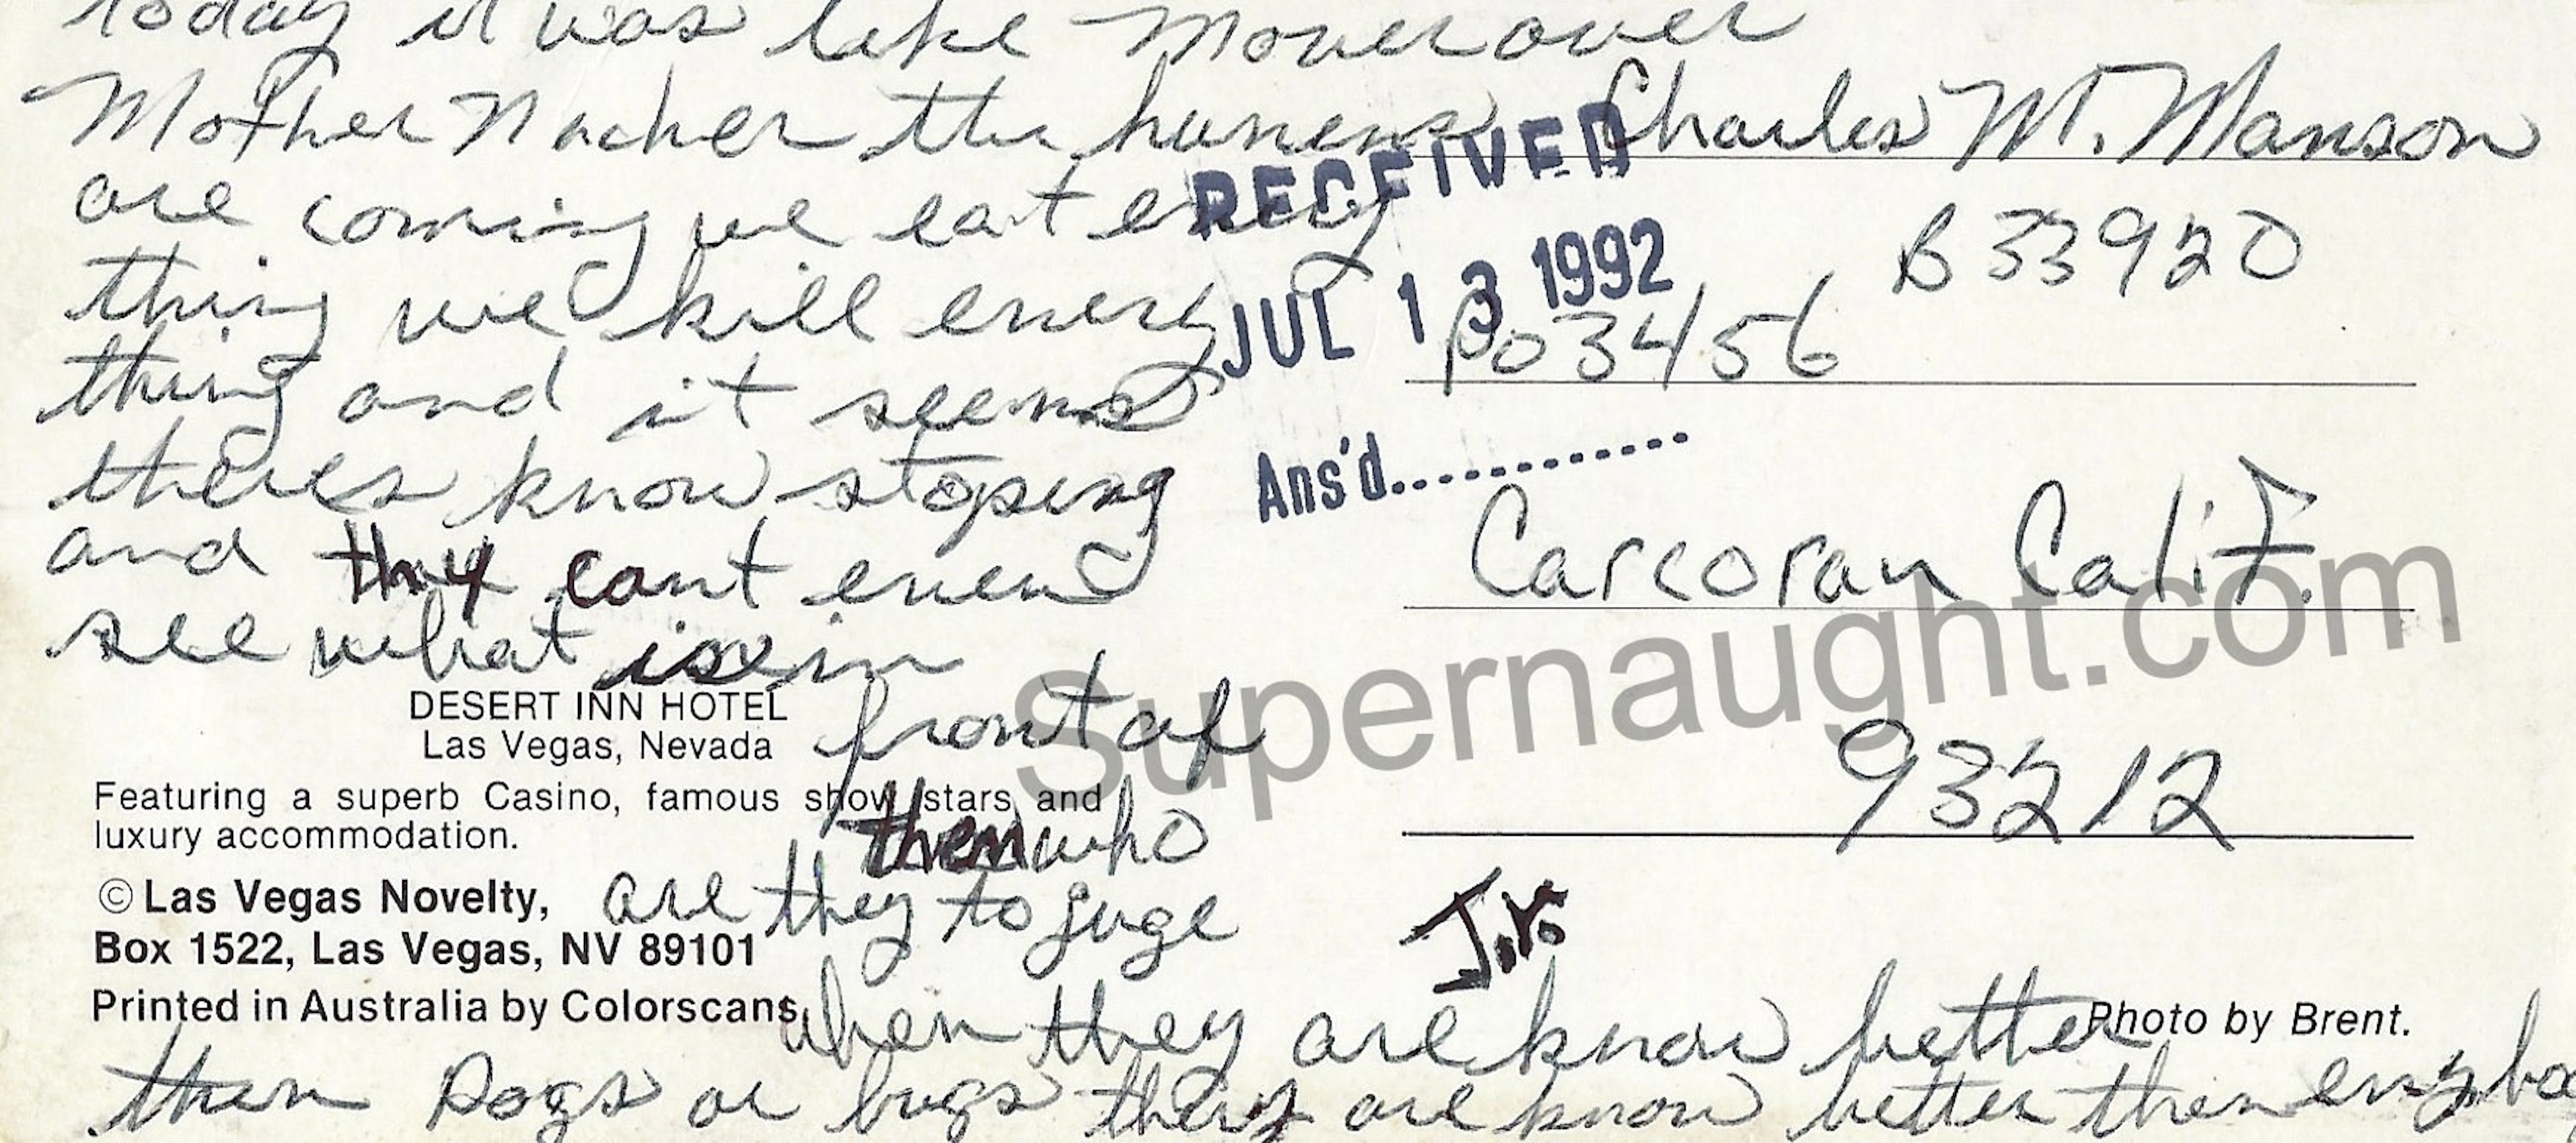 today it was like Mover over
Mother Nacher the humens
are coming we eat every
thing we kill every
thing and it seems
theres know stoping
and they cant even
see what is in
front of
them who
are they to juge
when they are know better
then Dogs or bugs they are know better then enybo
Charles M. Manson
B 33920
PO 3456
Carcoran Calif.
93212
Jr.
RECEIVED
JUL 13 1992
Ans'd............
DESERT INN HOTEL
Las Vegas, Nevada
Featuring a superb Casino, famous show stars and
luxury accommodation.
© Las Vegas Novelty,
Box 1522, Las Vegas, NV 89101
Printed in Australia by Colorscans.
Photo by Brent.
Supernaught.com